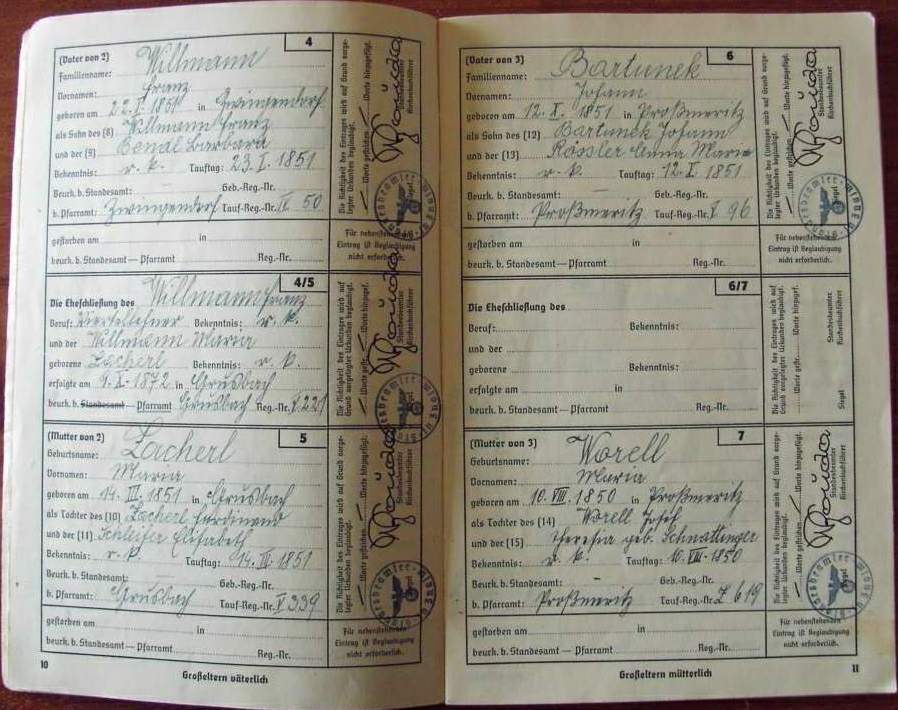 4
(Vater von 2)
Familienname: Willmann
Vornamen: Franz
geboren am 22. I. 1851 in Zwingendorf
als Sohn des (8) Willmann Franz
und der (9) Barbara
Bekenntnis: r. k. Tauftag: 23. I. 1851
Beurk. b. Standesamt: Geb.-Reg.-Nr.
b. Pfarramt: Zwingendorf Tauf-Reg.-Nr. IV 50
gestorben am in
beurk. b. Standesamt — Pfarramt Reg.-Nr.
Die Richtigkeit des Eintrages wird auf Grund vorge-
legter Urkunden beglaubigt.
— Worte gestrichen — Worte hinzugefügt.
Standesbeamter
Kirchenbuchführer
Siegel
Für nebenstehenden
Eintrag ist Beglaubigung
nicht erforderlich.
4/5
Die Eheschließung des Willmann Franz
Beruf: Bekenntnis: r. k.
und der Willmann Maria
geborene Zacherl Bekenntnis: r. k.
erfolgte am in Grusbach
beurk. b. Standesamt — Pfarramt Grusbach Reg.-Nr. 221
Die Richtigkeit des Eintrages wird auf
Grund vorgelegter Urkunden beglaubigt.
Standesbeamter
Kirchenbuchführer
5
(Mutter von 2)
Geburtsname: Zacherl
Vornamen: Maria
geboren am 14. III. 1851 in Grusbach
als Tochter des (10) Zacherl Ferdinand
und der (11) Schleifer Elisabeth
Bekenntnis: r. k. Tauftag: 14. III. 1851
Beurk. b. Standesamt: Geb.-Reg.-Nr.
b. Pfarramt: Grusbach Tauf-Reg.-Nr. V 339
gestorben am in
beurk. b. Standesamt — Pfarramt Reg.-Nr.
Die Richtigkeit des Eintrages wird auf Grund vorge-
legter Urkunden beglaubigt.
— Worte gestrichen — Worte hinzugefügt.
Standesbeamter
Kirchenbuchführer
Siegel
Für nebenstehenden
Eintrag ist Beglaubigung
nicht erforderlich.
10
Großeltern väterlich
6
(Vater von 3)
Familienname: Bartunek
Vornamen: Johann
geboren am 12. X. 1851 in Proßmeritz
als Sohn des (12) Bartunek Johann
und der (13) Rössler Anna Maria
Bekenntnis: r. k. Tauftag: 12. X. 1851
Beurk. b. Standesamt: — Geb.-Reg.-Nr.
b. Pfarramt: Proßmeritz Tauf-Reg.-Nr. 96
gestorben am in
beurk. b. Standesamt — Pfarramt Reg.-Nr.
Die Richtigkeit des Eintrages wird auf Grund vorge-
legter Urkunden beglaubigt.
— Worte gestrichen — Worte hinzugefügt.
Standesbeamter
Kirchenbuchführer
Siegel
Für nebenstehenden
Eintrag ist Beglaubigung
nicht erforderlich.
6/7
Die Eheschließung des
Beruf: Bekenntnis:
und der
geborene Bekenntnis:
erfolgte am in
beurk. b. Standesamt — Pfarramt Reg.-Nr.
Die Richtigkeit des Eintrages wird auf
Grund vorgelegter Urkunden beglaubigt.
Worte gestr. Worte hinzugef.
Standesbeamter
Kirchenbuchführer
Siegel
7
(Mutter von 3)
Geburtsname: Worell
Vornamen: Maria
geboren am 10. VIII. 1850 in Proßmeritz
als Tochter des (14) Worell Josef
und der (15) Theresia geb. Schnattinger
Bekenntnis: r. k. Tauftag: 10. VIII. 1850
Beurk. b. Standesamt: — Geb.-Reg.-Nr.
b. Pfarramt: Proßmeritz Tauf-Reg.-Nr. 619
gestorben am in
beurk. b. Standesamt — Pfarramt Reg.-Nr.
Die Richtigkeit des Eintrages wird auf Grund vorge-
legter Urkunden beglaubigt.
— Worte gestrichen — Worte hinzugefügt.
Standesbeamter
Kirchenbuchführer
Siegel
Für nebenstehenden
Eintrag ist Beglaubigung
nicht erforderlich.
11
Großeltern mütterlich